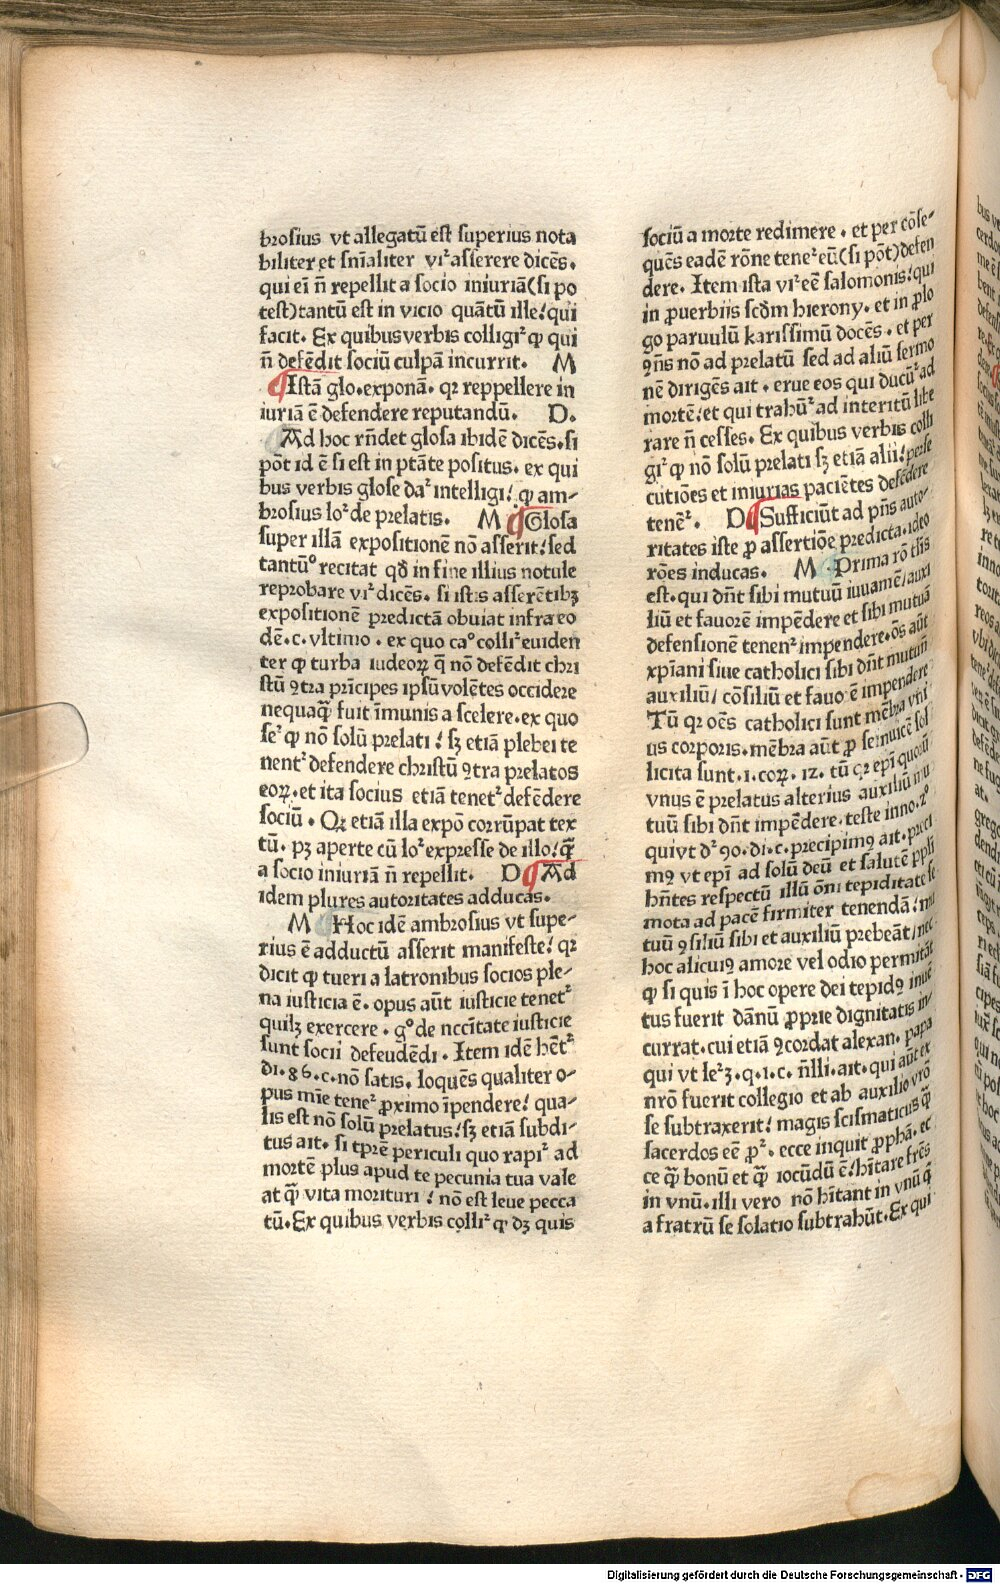 brosius vt allegatū est superius nota
biliter et sn̄ialiter vr̉ asserere dicēs.
qui ei n̄ repellit a socio iniuriā(si po
test)tantū est in vicio quātū ille! qui
facit. Ex quibus verbis colligit̉ ꝙ qui
n̄ defēdit sociū culpā incurrit. M
¶Istā glo. exponā. qꝛ reppellere in
iuriā ē defendere reputandū. D.
Ad hoc rn̄det glosa ibidē dicēs. si
pōt id ē si est in ptāte positus. ex qui
bus verbis glose daꝛ̉ intelligi! ꝙ am-
brosius loꝛ̉ de prelatis. M ¶Glosa
super illā expositionē nō asserit! sed
tantūº recitat qđ in fine illius notule
reprobare viꝛ̉ dicēs. si istis asserētibꝫ
expositionē predictā obuiat infra eo
dē. c. vltimo. ex quo caº colliꝛ̉ euiden
ter ꝙ turba iudeoꝝ q̄ nō defēdit chri
stū ꝯtra prīcipes ipsū volētes occidere
nequaq̄ fuit īmunis a scelere. ex quo
seꝛ̉ ꝙ nō solū prelati! sꝫ etiā plebei te
nentꝛ̉ defendere christū ꝯtra prelatos
eoꝝ. et ita socius etiā tenetꝛ̉ defēdere
sociū. Qꝛ etiā illa expō corrūpat tex
tū. pꝫ aperte cū loꝛ̉ expresse de illo! q̄
a socio iniuriā n̄ repellit. D ¶Ad
idem plures autoritates adducas.
M Hoc idē ambrosius vt supe-
rius ē adductū asserit manifeste! qꝛ
dicit ꝙ tueri a latronibus socios ple-
na iusticia ē. opus aūt iusticie tenetꝛ̉
quilꝫ exercere. gº de nccītate iusticie
sunt socii defeudēdi. Item idē hētꝛ̉
di. 86. c. nō satis. loquēs qualiter o-
pus mīe teneꝛ̉ ꝓximo īpendere! qua-
lis est nō solū prelatus! sꝫ etiā subdi-
tus ait. si tꝑe periculi quo rapiꝛ̉ ad
mortē plus apud te pecunia tua vale
at q̄ vita morituri! nō est leue pecca
tū. Ex quibus verbis colliꝛ̉ ꝙ dꝫ quis
sociū a morte redimere. et per cōse-
quēs eadē rōne teneꝛ̉ eū(si pōt)defen
dere. Item ista viꝛ̉ eē salomonis! qui
in ꝓuerbiis scdm hierony. et in ꝓlo
go paruulū karissimū docēs. et per
ꝯn̄s nō ad prelatū sed ad aliū sermo
nē dirigēs ait. erue eos qui ducūꝛ̉ ad
mortē! et qui trahūꝛ̉ ad interitū libe
rare n̄ cesses. Ex quibus verbis colli
giꝛ̉ ꝙ nō solū prelati sꝫ etiā alii! perse
cutiōes et iniurias paciētes defēdere
tenēꝛ̉. D ¶Sufficiūt ad pn̄s auto-
ritates iste ꝓ assertiōe predicta. ideo
rōes inducas. M ¶Prima rō tlīs
est. qui dn̄t sibi mutuū iuuamē/ auxi
liū et fauorē impēdere et sibi mutuā
defensionē tenenꝛ̉ impendere. oēs aūt
xp̄iani siue catholici sibi dn̄t mutuū
auxiliū/ cōsiliū et fauoꝛē impendere
Tū qꝛ oēs catholici sunt mēbra vni
us corporis. mēbra aūt ꝓ se inuicē sol
licita sunt. 1. coꝝ. 12. tū qꝛ epī quoꝝ
vnus ē prelatus alterius auxiliū mu
tuū sibi dn̄t impēdere. teste inno. 2º
qui vt đ 90. di. c. precipimꝰ ait. preci
mꝰ vt epī ad solū deū et salutē ppli
hn̄tes respectū illū ōni tepiditate se
mota ad pacē firmiter tenendā! mu
tuū ꝯsiliū sibi et auxiliū prebeāt/ nec
hoc alicuiꝰ amore vel odio permitāt
ꝙ si quis ī hoc opere dei tepidꝰ inuē
tus fuerit dānū ꝓprie dignitatis in-
currat. cui etiā ꝯcordat alexan. papa
qui vt leꝛ̉ 3. q. 1. c. nl̄li. ait. qui aūt ex
nr̄o fuerit collegio et ab auxilio vr̄o
se subtraxerit! magis scismaticus q̄
sacerdos eē ꝓꝛ̉. ecce inquit ꝓphā. ec
ce q̄ bonū et q̄ iocūdū ē! hītare fr̄es
in vnū. illi vero nō hītant in vnū q̄
a fratrū se solatio subtrahūt. Ex qui
Digitalisierung gefördert durch die Deutsche Forschungsgemeinschaft - DFG